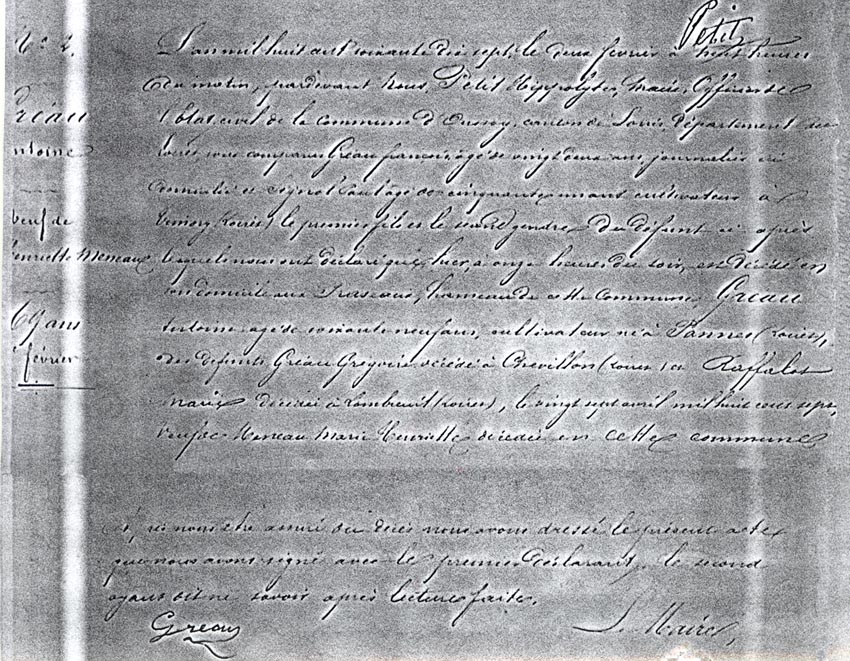 Petit
N° 2.
Gréau
Antoine
veuf de
Henriette Meneau
69 ans
1er février
L'an mil huit cent soixante dix sept, le deux février à huit heures
du matin, pardevant nous, Petit Hippolyte, Maire, Officier de
l'état civil de la commune d'Oussoy, canton de Lorris, département du
Loiret sont comparus Gréau françois, âgé de vingt deux ans, journalier ici
domicilié et âgé de cinquante ans cultivateur à
Vimory (Loiret) le premier fils et le second gendre du défunt ci après
lesquels nous ont déclaré que hier, à onze heures du soir, est décédé en
son domicile aux hameau de cette commune, Gréau
Antoine âgé de soixante neuf ans, cultivateur né à Pannes (Loiret),
des défunts Gréau Grégoire décédé à Chevillon (Loiret) et Raffalet
Marie décédée à Lombreuil (Loiret), le vingt sept avril mil huit cent sept,
veuf de Meneau Marie Henriette décédée en cette commune
Après nous être assuré du décès nous avons dressé le présent acte
que nous avons signé avec le premier déclarant, le second
ayant dit ne savoir après lecture faite.
Greau
Le Maire,